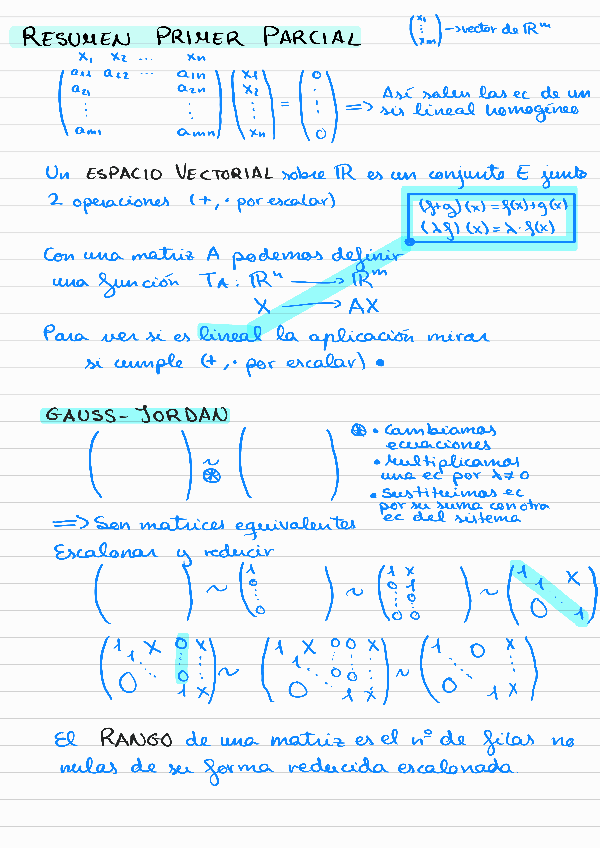 RESUMEN PRIMER PARCIAL
(x₁ ⋮ xₘ) → vector de ℝᵐ
x₁ x₂ ... xₙ
(a₁₁ a₁₂ ... a₁ₙ) (x₁) (0)
(a₂₁ a₂ₙ) (x₂) = (⋮) => Así salen las ec de un
(⋮ ⋮) (⋮) (⋮) sis lineal homogéneo
(aₘ₁ aₘₙ) (xₙ) (0)
Un ESPACIO VECTORIAL sobre ℝ es un conjunto E junto
2 operaciones (+, · por escalar)
(f+g)(x) = f(x)+g(x)
(λf)(x) = λ·f(x)
Con una matriz A podemos definir
una función T_A : ℝⁿ → ℝᵐ
X → AX
Para ver si es lineal la aplicación mirar
si cumple (+, · por escalar) •
GAUSS-JORDAN
( ) ~ ⊛ ( )
⊛ • Cambiamos
ecuaciones
• Multiplicamos
una ec por λ≠0
• Sustituimos ec
por su suma con otra
ec del sistema
=> Son matrices equivalentes
Escalonar y reducir
( ) ~ (1 0 ⋮ 0) ~ (1 X 0 1 ⋮ 0 ⋮ 0 0) ~ (1 1 X ⋱ 0 1)
(1 1 X 0 X ⋱ ⋮ ⋮ 0 0 1 X) ~ (1 X 0 0 X 1 ⋮ ⋮ ⋱ 0 0 0 1 X) ~ (1 0 X ⋱ ⋮ 0 1 X)
El RANGO de una matriz es el nº de filas no
nulas de su forma reducida escalonada.